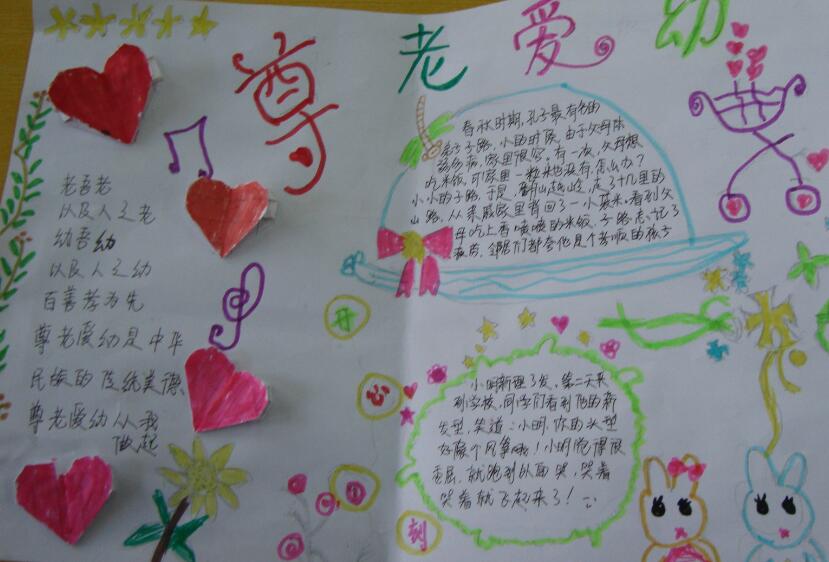 尊老爱幼
老吾老
以及人之老
幼吾幼
以及人之幼
百善孝为先
尊老爱幼是中华
民族的传统美德
尊老爱幼从我
做起
春秋时期,孔子最有名的
弟子子路,小的时候,由于父母体
弱多病,家里很穷,有一次,父母想
吃米饭,可家里一粒米也没有,怎么办?
小小的子路,于是,翻山越岭,走了十几里的
山路,从亲戚家里背回了一小袋米,看到父
母吃上香喷喷的米饭,子路忘记了
疲劳,邻居们都夸他是个孝顺的孩子
开
心
一
刻
小明新理了发,第二天来
到学校,同学们看到他的新
发型,笑道:小明,你的头型
好像个风筝哦!小明觉得很
委屈,就跑到外面哭,哭着
哭着就飞起来了!